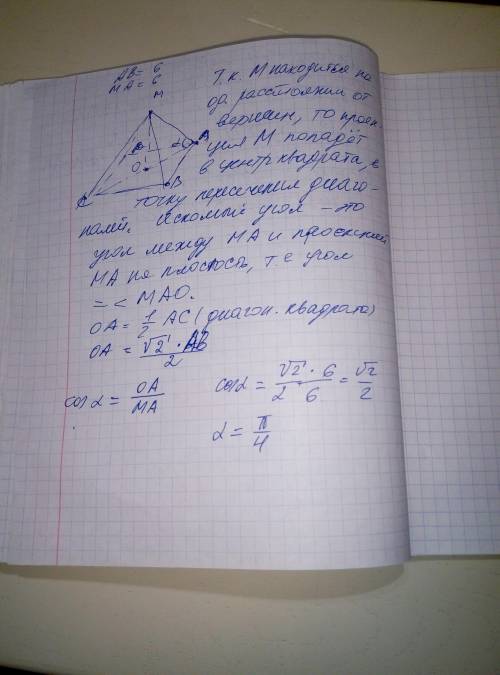 AB = 6
MA = 6
M
Т.к. M находится на
расстоянии от
вершин, то проек-
ция M попадёт
в центр квадрата, в
точку пересечения диаго-
налей. Искомый угол – это
угол между MA и проекцией
MA на плоскость, т.е угол
= < MAO.
A
O
B
C
OA = 1/2 AC (диагон. квадрата)
OA = √2 · AB / 2
cos α = OA / MA
cos α = √2 · 6 / 2 · 6 = √2 / 2
α = π / 4